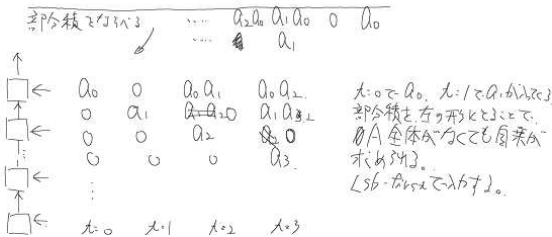 部分積をならべる
..... a₂a₀ a₁a₀ 0 a₀
..... a₁
a₀ 0 a₀a₁ a₀a₂
0 a₁ 0 a₁a₂
0 0 a₂ 0
0 0 0 a₃
t=0 t=1 t=2 t=3
t=0で a₀, t=1で a₁が入ってくる
部分積を左の形にとることで、
A全体がなくても自乗が
求められる。
Lsb-firstで入力する。